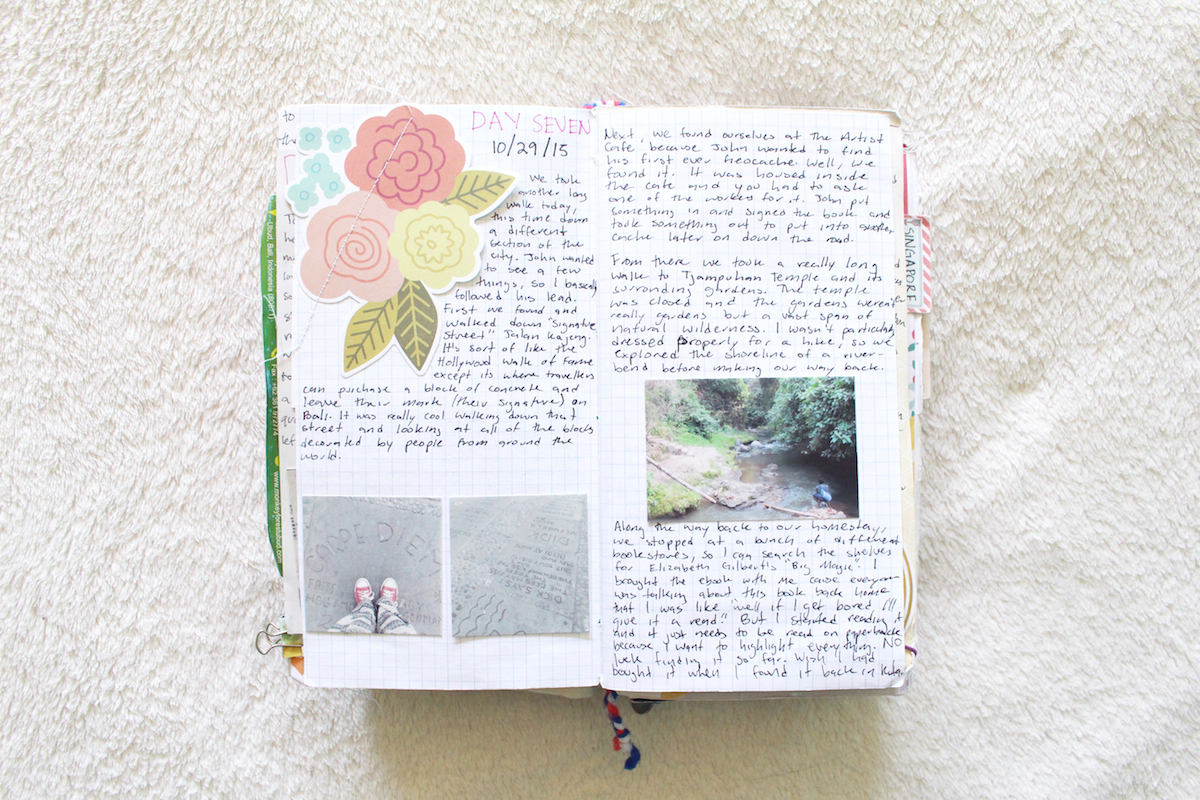 to
DAY SEVEN
10/29/15
We took
another long
walk today,
this time down
a different
section of the
city. John wanted
to see a few
things, so I basically
followed his lead.
First we found and
walked down "Signature
Street" Jalan Kajeng.
It's sort of like the
Hollywood Walk of Fame
except its where travellers
can purchase a block of concrete and
leave their mark (their signature) on
Bali. It was really cool walking down that
street and looking at all of the blocks
decorated by people from around the
world.
CARPE DIEM
DICK
Next, we found ourselves at The Artist
Cafe because John wanted to find
his first ever Geocache. Well, we
found it. It was housed inside
the cafe and you had to ask
one of the workers for it. John put
something in and signed the book and
took something out to put into another
cache later on down the road.
From there we took a really long
walk to Tjampuhan Temple and its
surronding gardens. The temple
was closed and the gardens weren't
really gardens but a vast span of
natural wilderness. I wasn't particularly
dressed properly for a hike, so we
explored the shoreline of a river-
bend before making our way back.
Along the way back to our homestay,
we stopped at a bunch of different
bookstores, so I can search the shelves
for Elizabeth Gilbert's "Big Magic". I
brought the ebook with me cause everyone
was talking about this book back home
that I was like "well if I get bored, I'll
give it a read." But I started reading it
and it just needs to be read on paperback
because I want to highlight everything. NO
luck finding it so far. Wish I had
bought it when I found it back in Kuta.
SINGAPORE
Ubud, Bali, Indonesia (80571)
Fax : +62 361 972774